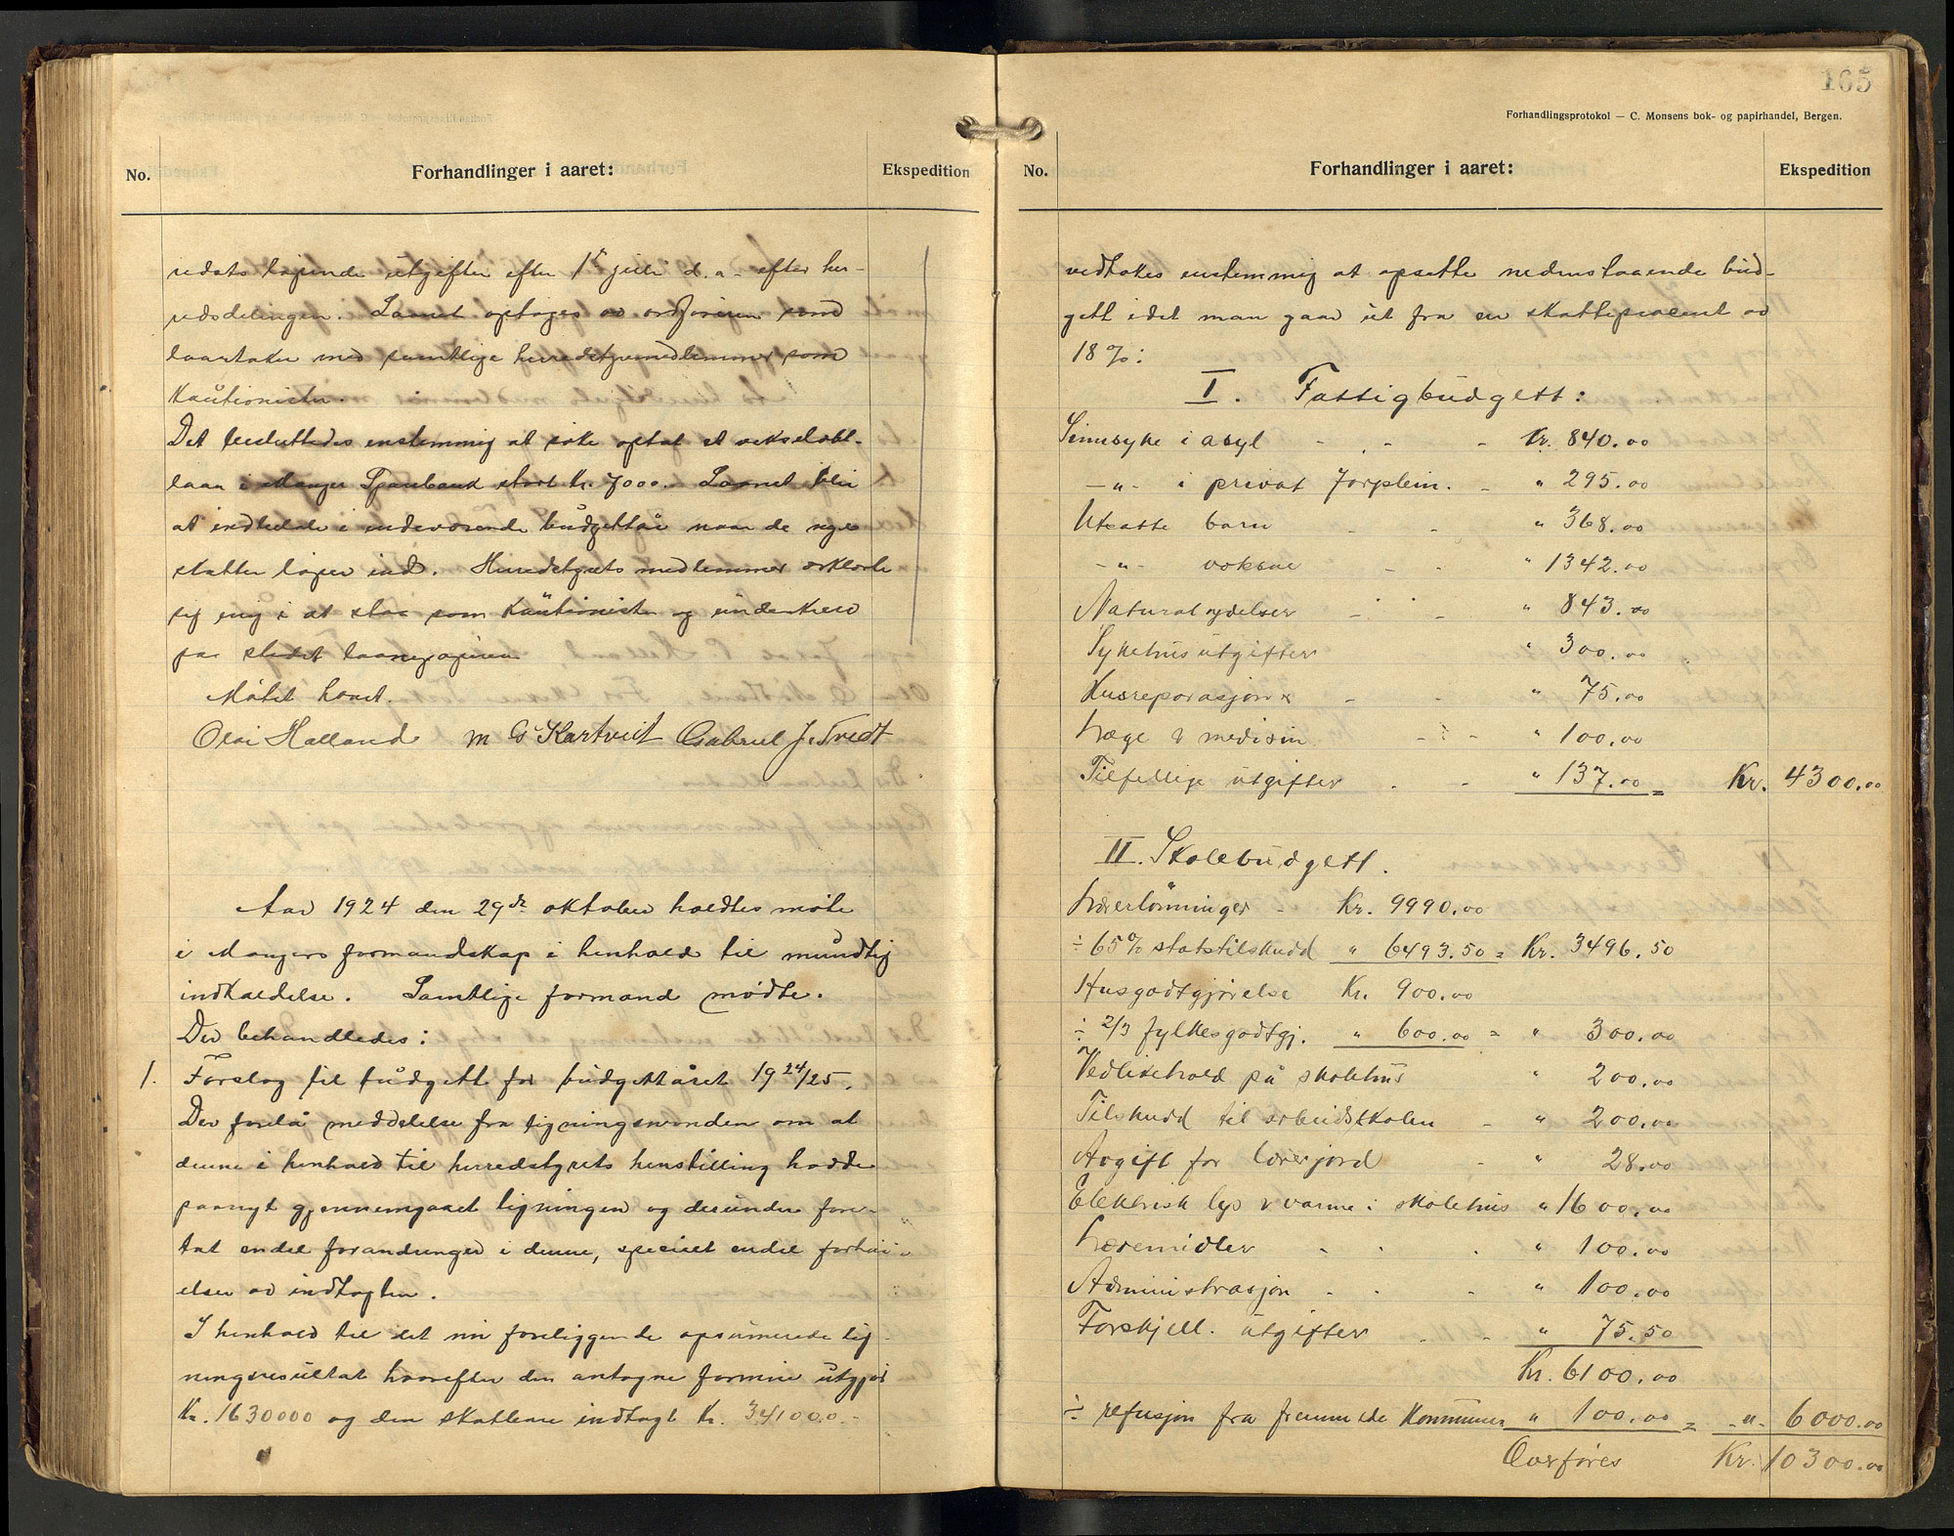 No.
Forhandlinger i aaret:
Ekspedition
redets løpende utgifter efter 1ste juli d.a. efter her-
redsdelingen. Laanet optages av ordføreren som
laantaker med samtlige herredstyremedlemmer som
kautionister.
Det besluttedes enstemmig at søke optat et vekselobl.
laan i Manger Sparebank stort kr. 7000.- Laanet blir
at indbetale i indeværende budgettår naar de nye
skatter løper ind. Herredstyrets medlemmer erklærte
sig enig i at staa som kautionister og underskrev
paa stedet laanepapirene.
Møtet hævet.
Olai Halland M G Kartveit Gabriel J. Tvedt
Aar 1924 den 29de oktober holdtes møte
i Mangers formandskap i henhold til mundtlig
indkaldelse. Samtlige formænd mødte.
Der behandledes:
1. Forslag til budgett for budgettåret 1924/25.
Der forelå meddelelse fra ligningsnevnden om at
denne i henhold til herredstyrets henstilling hadde
paanyt gjennemgaaet ligningen og derunder fore-
tat endel forandringer i denne, specielt endel forhøi-
elser av indtægten.
I henhold til det nu foreliggende opsumerede lig-
ningsresultat hvorefter den antagne formue utgjør
Kr. 1630000 og den skatbare indtægt Kr. 341000.-
165
Forhandlingsprotokol — C. Monsens bok- og papirhandel, Bergen.
No.
Forhandlinger i aaret:
Ekspedition
vedtokes enstemmig at opsette nedenstaaende bud-
gett idet man gaar ut fra en skatteprosent av
18 %:
I. Fattigbudgett:
Sinnsyke i asyl - - - Kr. 840.00
-"- i privat forplein. - " 295.00
Utsatte barn - - " 368.00
-"- voksne - - " 1342.00
Naturalydelser - - - " 843.00
Sykehusutgifter " 300.00
Husreparasjoner - - " 75.00
Læge & medisin - - - " 100.00
Tilfellige utgifter - - " 137.00 = Kr. 4300.00
II. Skolebudgett.
Lærerlønninger - Kr. 9990.00
÷ 65% statstilskudd " 6493.50 = Kr. 3496.50
Husgodtgjørelse Kr. 900.00
÷ 2/3 fylkesgodtgj. " 600.00 = " 300.00
Vedlikehold på skolehus " 200.00
Tilskudd til arbeidsskolen - " 200.00
Avgift for lærerjord - " 28.00
Elektrisk lys & varme i skolehus " 1600.00
Læremidler - - - " 100.00
Administrasjon - - - " 100.00
Forskjell. utgifter - - " 75.50
Kr. 6100.00
÷ refusjon fra fremmede kommuner " 100.00 = -"- 6000.00
Overføres Kr. 10300.00